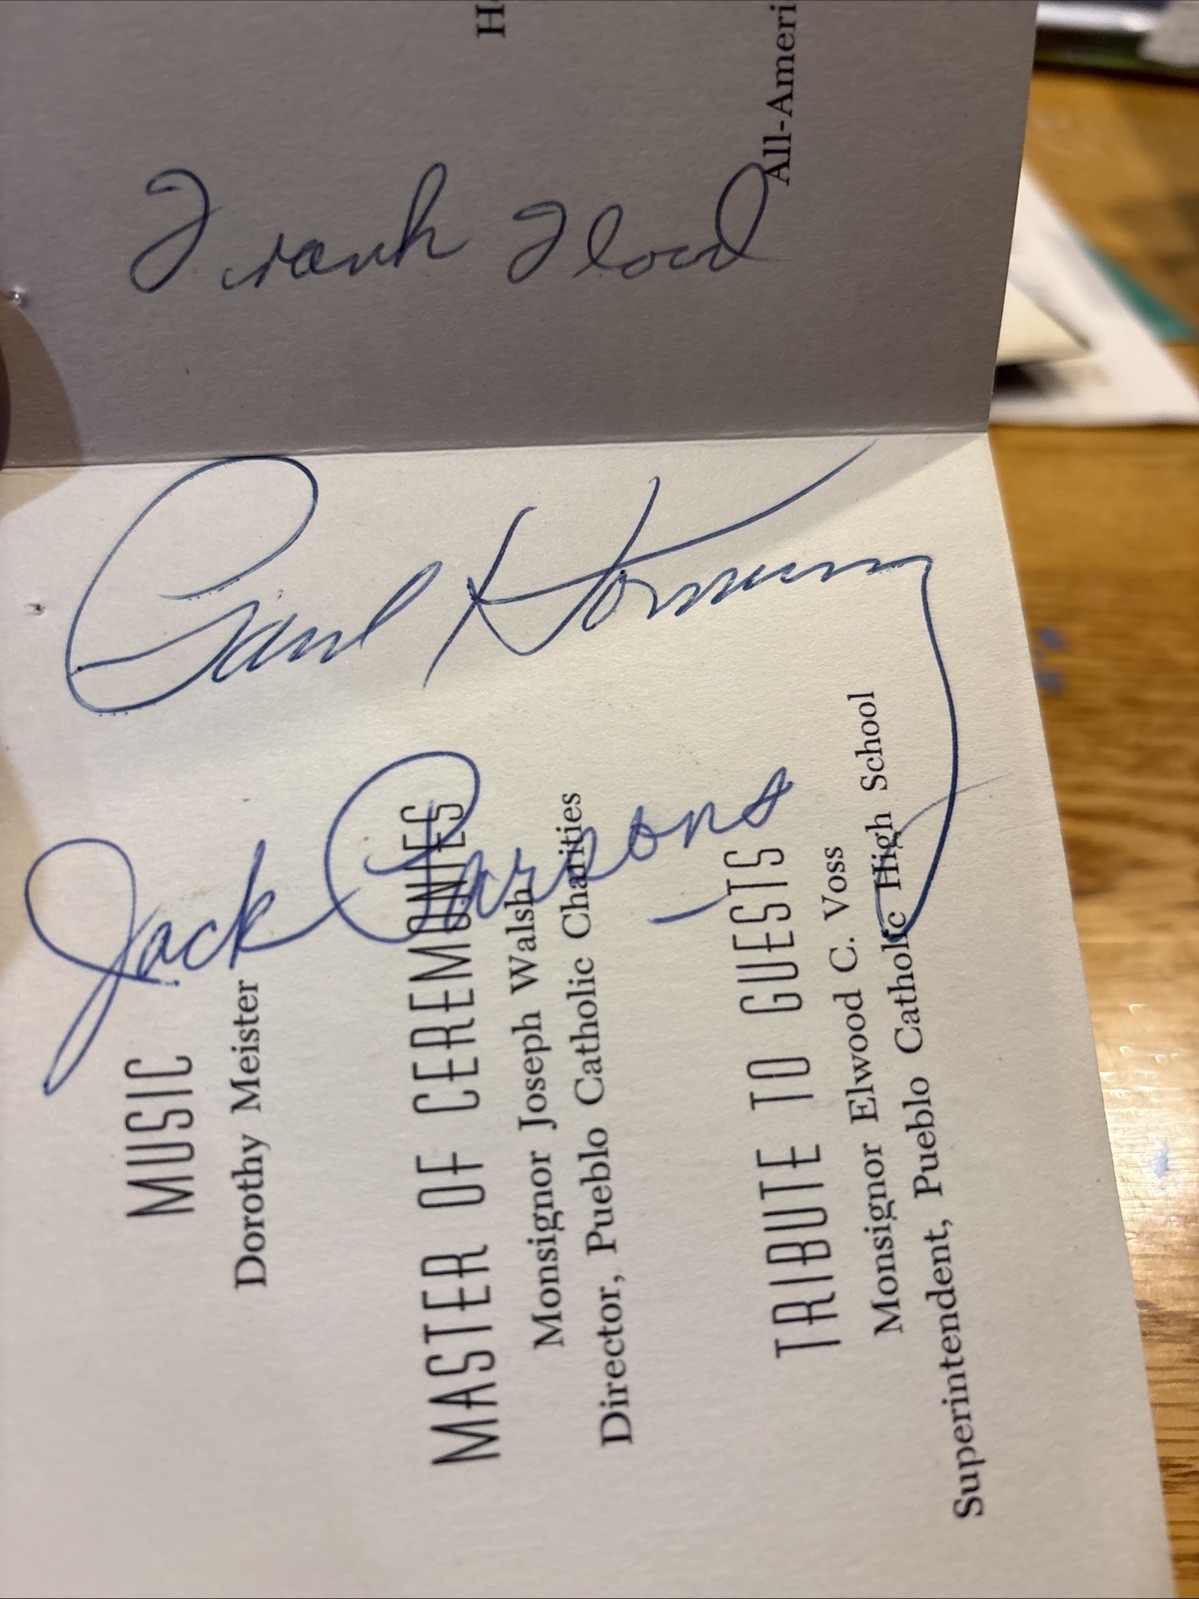 H
All-Ameri
Frank Flood
Paul Hornung
Jack Parsons
MUSIC
Dorothy Meister
MASTER OF CEREMONIES
Monsignor Joseph Walsh
Director, Pueblo Catholic Charities
TRIBUTE TO GUESTS
Monsignor Elwood C. Voss
Superintendent, Pueblo Catholic High School